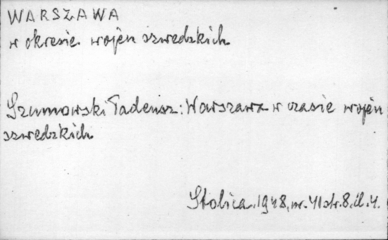 WARSZAWA
w okresie wojen szwedzkich
Szumowski Tadeusz: Warszawa w czasie wojen
szwedzkich
Stolica, 1948, nr. 41 str. 8, il. 4.